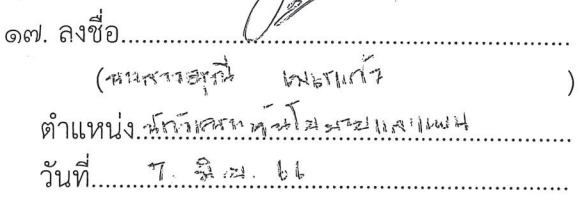 ๑๗. ลงชื่อ
(นางสาวอรุณี เพชรแก้ว)
ตำแหน่ง นักวิเคราะห์นโยบายและแผน
วันที่ 7. มิ.ย. 66